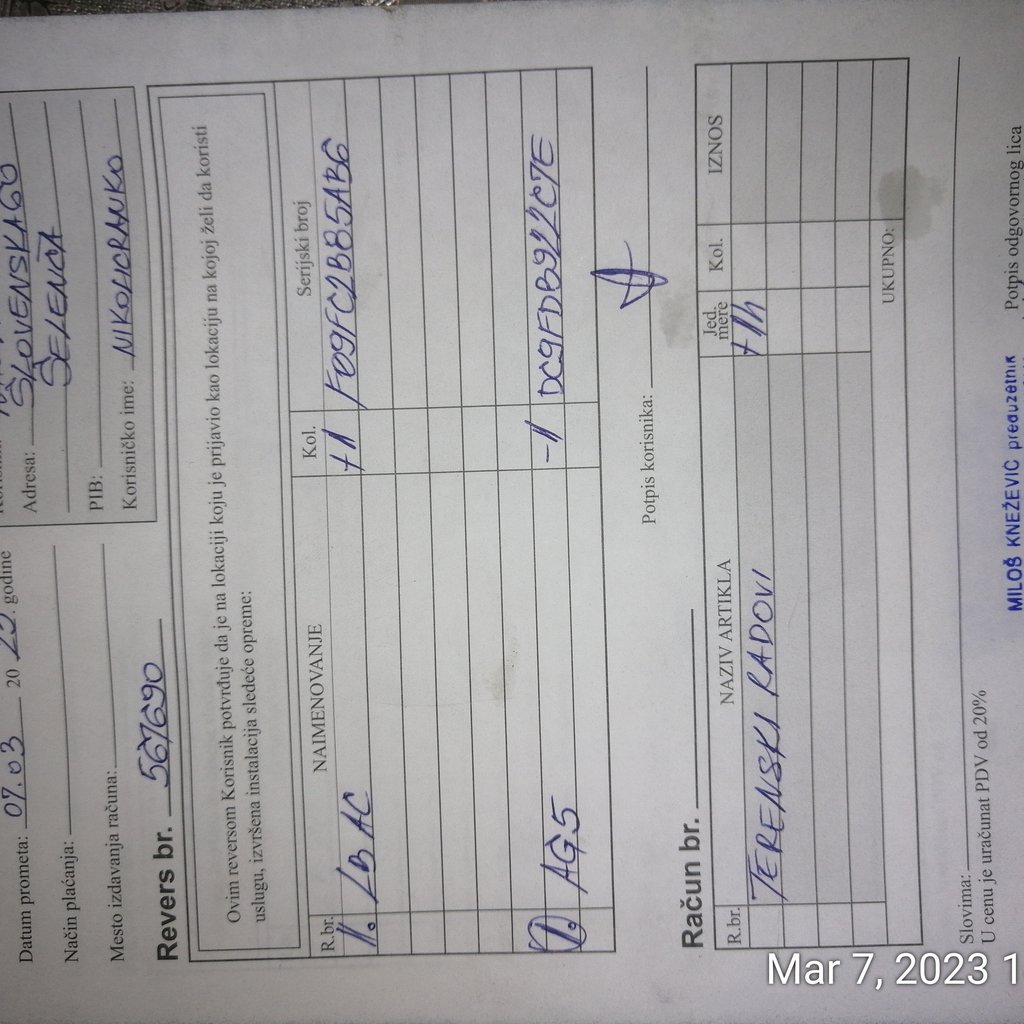 Datum prometa: 07.03 20 23. godine
Način plaćanja:
Mesto izdavanja računa:
Adresa: SLOVENSKA 60
SELENČA
PIB:
Korisničko ime: NIKOLICRANKO
Revers br. 567690
Ovim reversom Korisnik potvrđuje da je na lokaciji koju je prijavio kao lokaciju na kojoj želi da koristi
uslugu, izvršena instalacija sledeće opreme:
R.br. NAIMENOVANJE Kol. Serijski broj
1. LB AC +1 F09FC2B85AB6
D. AG5 -1 DC9FDB922C7E
Potpis korisnika:
Račun br.
R.br. NAZIV ARTIKLA Jed. mere Kol. IZNOS
TERENSKI RADOVI +1h
UKUPNO:
Slovima:
U cenu je uračunat PDV od 20%
Potpis odgovornog lica
MILOŠ KNEŽEVIĆ preduzetnik
Mar 7, 2023 1